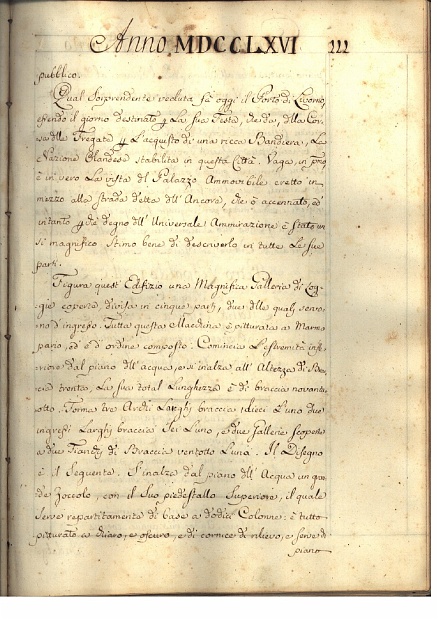 Anno MDCCLXVI 111
pubblico.
Qual Sorprendente veduta fà oggi il Porto di Livorno,
essendo il giorno destinato p la sua Festa, che dà, alla Cor-
sa dlle Fregate p L'acquisto di una ricca Bandiera, La
Nazione Olandese stabilita in questa Città. Vaga, in
è in vero La vista dl Palazzo Ammovibile eretto in
mezzo alla Strada detta dll' Ancora, che ò accennato, ed
intanto p che degno dll' Universale Ammirazione è stato un
sì magnifico stimo bene di descriverlo in tutte Le sue
parti.
Figura quest Edifizio una Magnifica Galleria di Log-
gie coperte divisa in cinque parti, due dlle quali servo-
no d'ingresso. Tutta questa Macchina è pitturata a Marmo
pario, ed è d'ordine composto. Comincia L'estremità infe-
riore dal piano dll' acqua, e s'inalza all' Altezza di Bra-
ccia trenta, La sua total Lunghezza è di braccia novant'
otto. Forma tre Archi Larghi braccia dieci L'uno due
ingressi Larghi braccia Sei L'uno, e due Gallerie scoperte
a due Fianchi di Braccia ventotto L'una. Il Disegno
è il Seguente. S'inalza dal piano dll' Acqua un gran-
de Zoccolo, con il Suo piedestallo Superiore, il quale
serve repartitamente di base a dodici Colonne: è tutto
pitturato a chiaro, e oscuro, e di cornice di rilievo, e serve di
piano